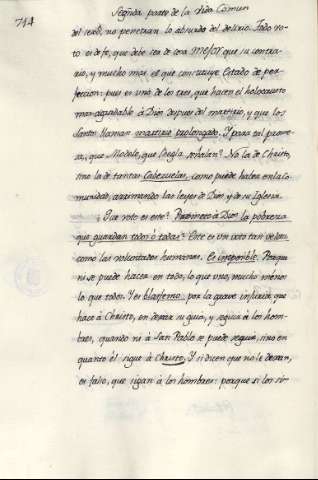 714
Segunda parte de la vida Comun
del sexo, no penetran lo absurdo del delirio. Todo vo-
to es de fe, que debe ser de cosa mejor que su contra-
rio, y mucho mas el que constituye Estado de per-
feccion: pues es uno de los tres, que hacen el holocausto
mas agradable à Dios despues del martirio, y que los
Santos llaman martirio prolongado. Y para tal promes-
sa, que Modelo, que Regla, señalan? No la de Christo,
sino la de tantas Cabezuelas, como puede haber en la Co-
munidad, arrimando las leyes de Dios, y de su Iglesia.
Que voto es este? Prometo à Dios la pobreza
que guardan todos ò todas? Este es un voto tan
como las voluntades humanas. Es imposible. Porque
ni se puede hacer en todo, lo que uno, mucho menos
lo que todos. Y es blasfemo por la grave injuria, que
hace à Christo, en dejar su guia, y seguir à los hom-
bres, quando ni à San Pablo se puede seguir, sino en
quanto èl sigue à Christo. Y si dicen que no le dexan,
es falso, que sigan à los hombres: porque si los si-